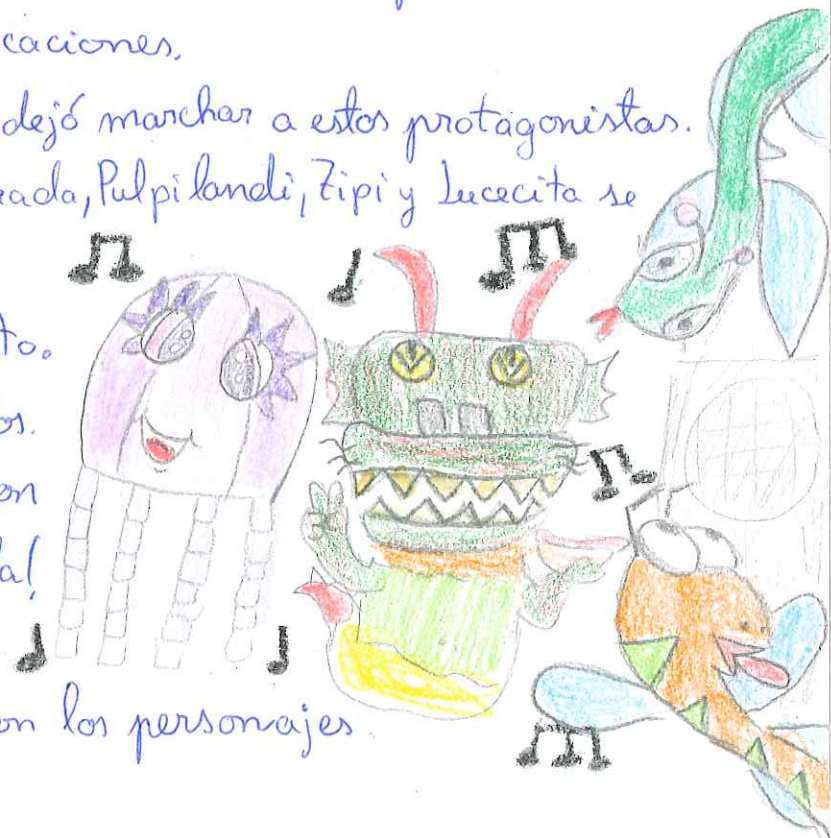 caciones.
dejó marchar a estos protagonistas.
rada, Pulpilandi, Zipi y Lucecita se
to.
os.
on
da!
on los personajes